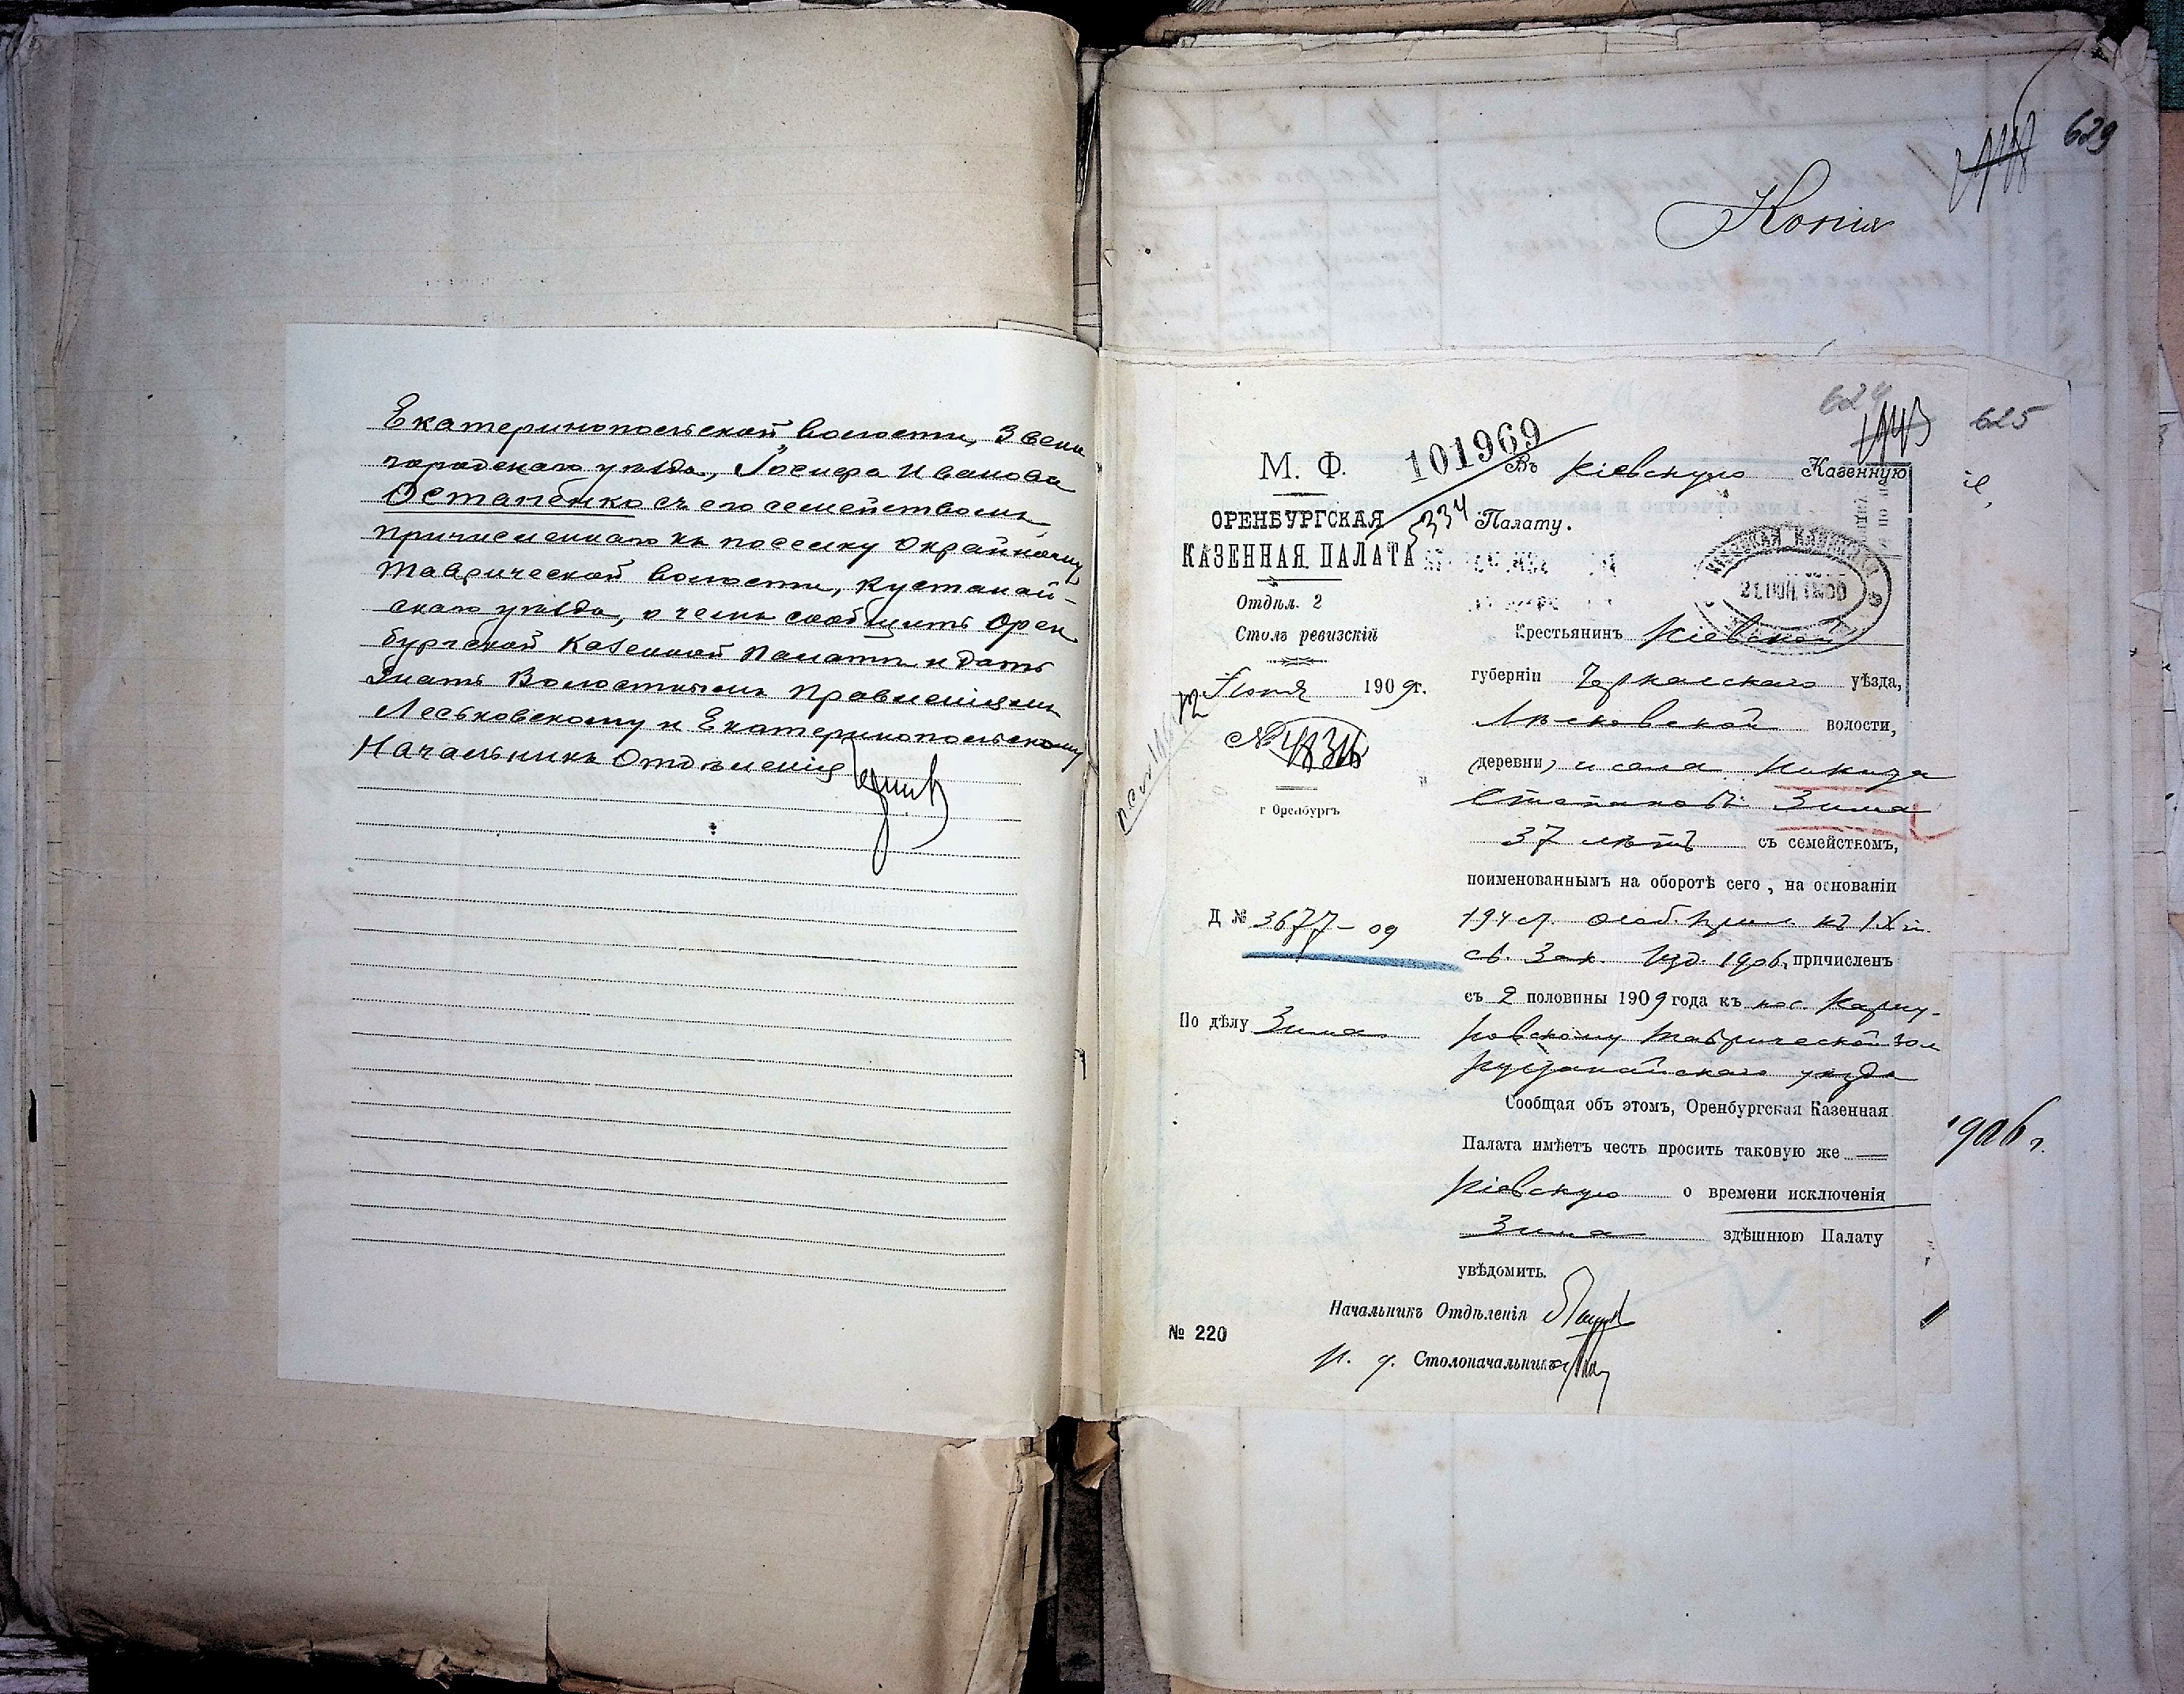 Екатеринопольской волости, Звени
городскаго уѣзда, Іосифа Иванова
Остапенко съ его семействомъ
причисленнаго къ поселку Окрайному
Таврической волости, Кустанай-
скаго уѣзда, о чемъ сообщить Орен
бургской Казенной Палатѣ и дать
знать Волостнымъ Правленіямъ
Леськовскому и Екатеринопольскому
Начальникъ Отдѣленія
629
Копія
624
625
101969
5334
М. Ф.
ОРЕНБУРГСКАЯ
КАЗЕННАЯ ПАЛАТА
Отдѣл. 2
Столъ ревизскій
Іюня 1909г.
№ 48316
г Оренбургъ
Д № 3677-09
По дѣлу Зима
№ 220
Въ Кіевскую Казенную
Палату.
Крестьянинъ Кіевской
губерніи Черкасскаго уѣзда,
Лесковской волости,
(деревни) и села Никита
Степановъ Зима
37 лѣтъ съ семействомъ,
поименованнымъ на оборотѣ сего, на основаніи
194 ст. особ. прил. къ IX т.
св. Зак. Изд. 1906, причисленъ
съ 2 половины 1909 года къ пос.
Таврической вол
Кустанайскаго уѣзда
Сообщая объ этомъ, Оренбургская Казенная
Палата имѣетъ честь просить таковую же
Кіевскую о времени исключенія
Зима здѣшнюю Палату
увѣдомить.
Начальникъ Отдѣленія
И. д. Столоначальника
1906 г.